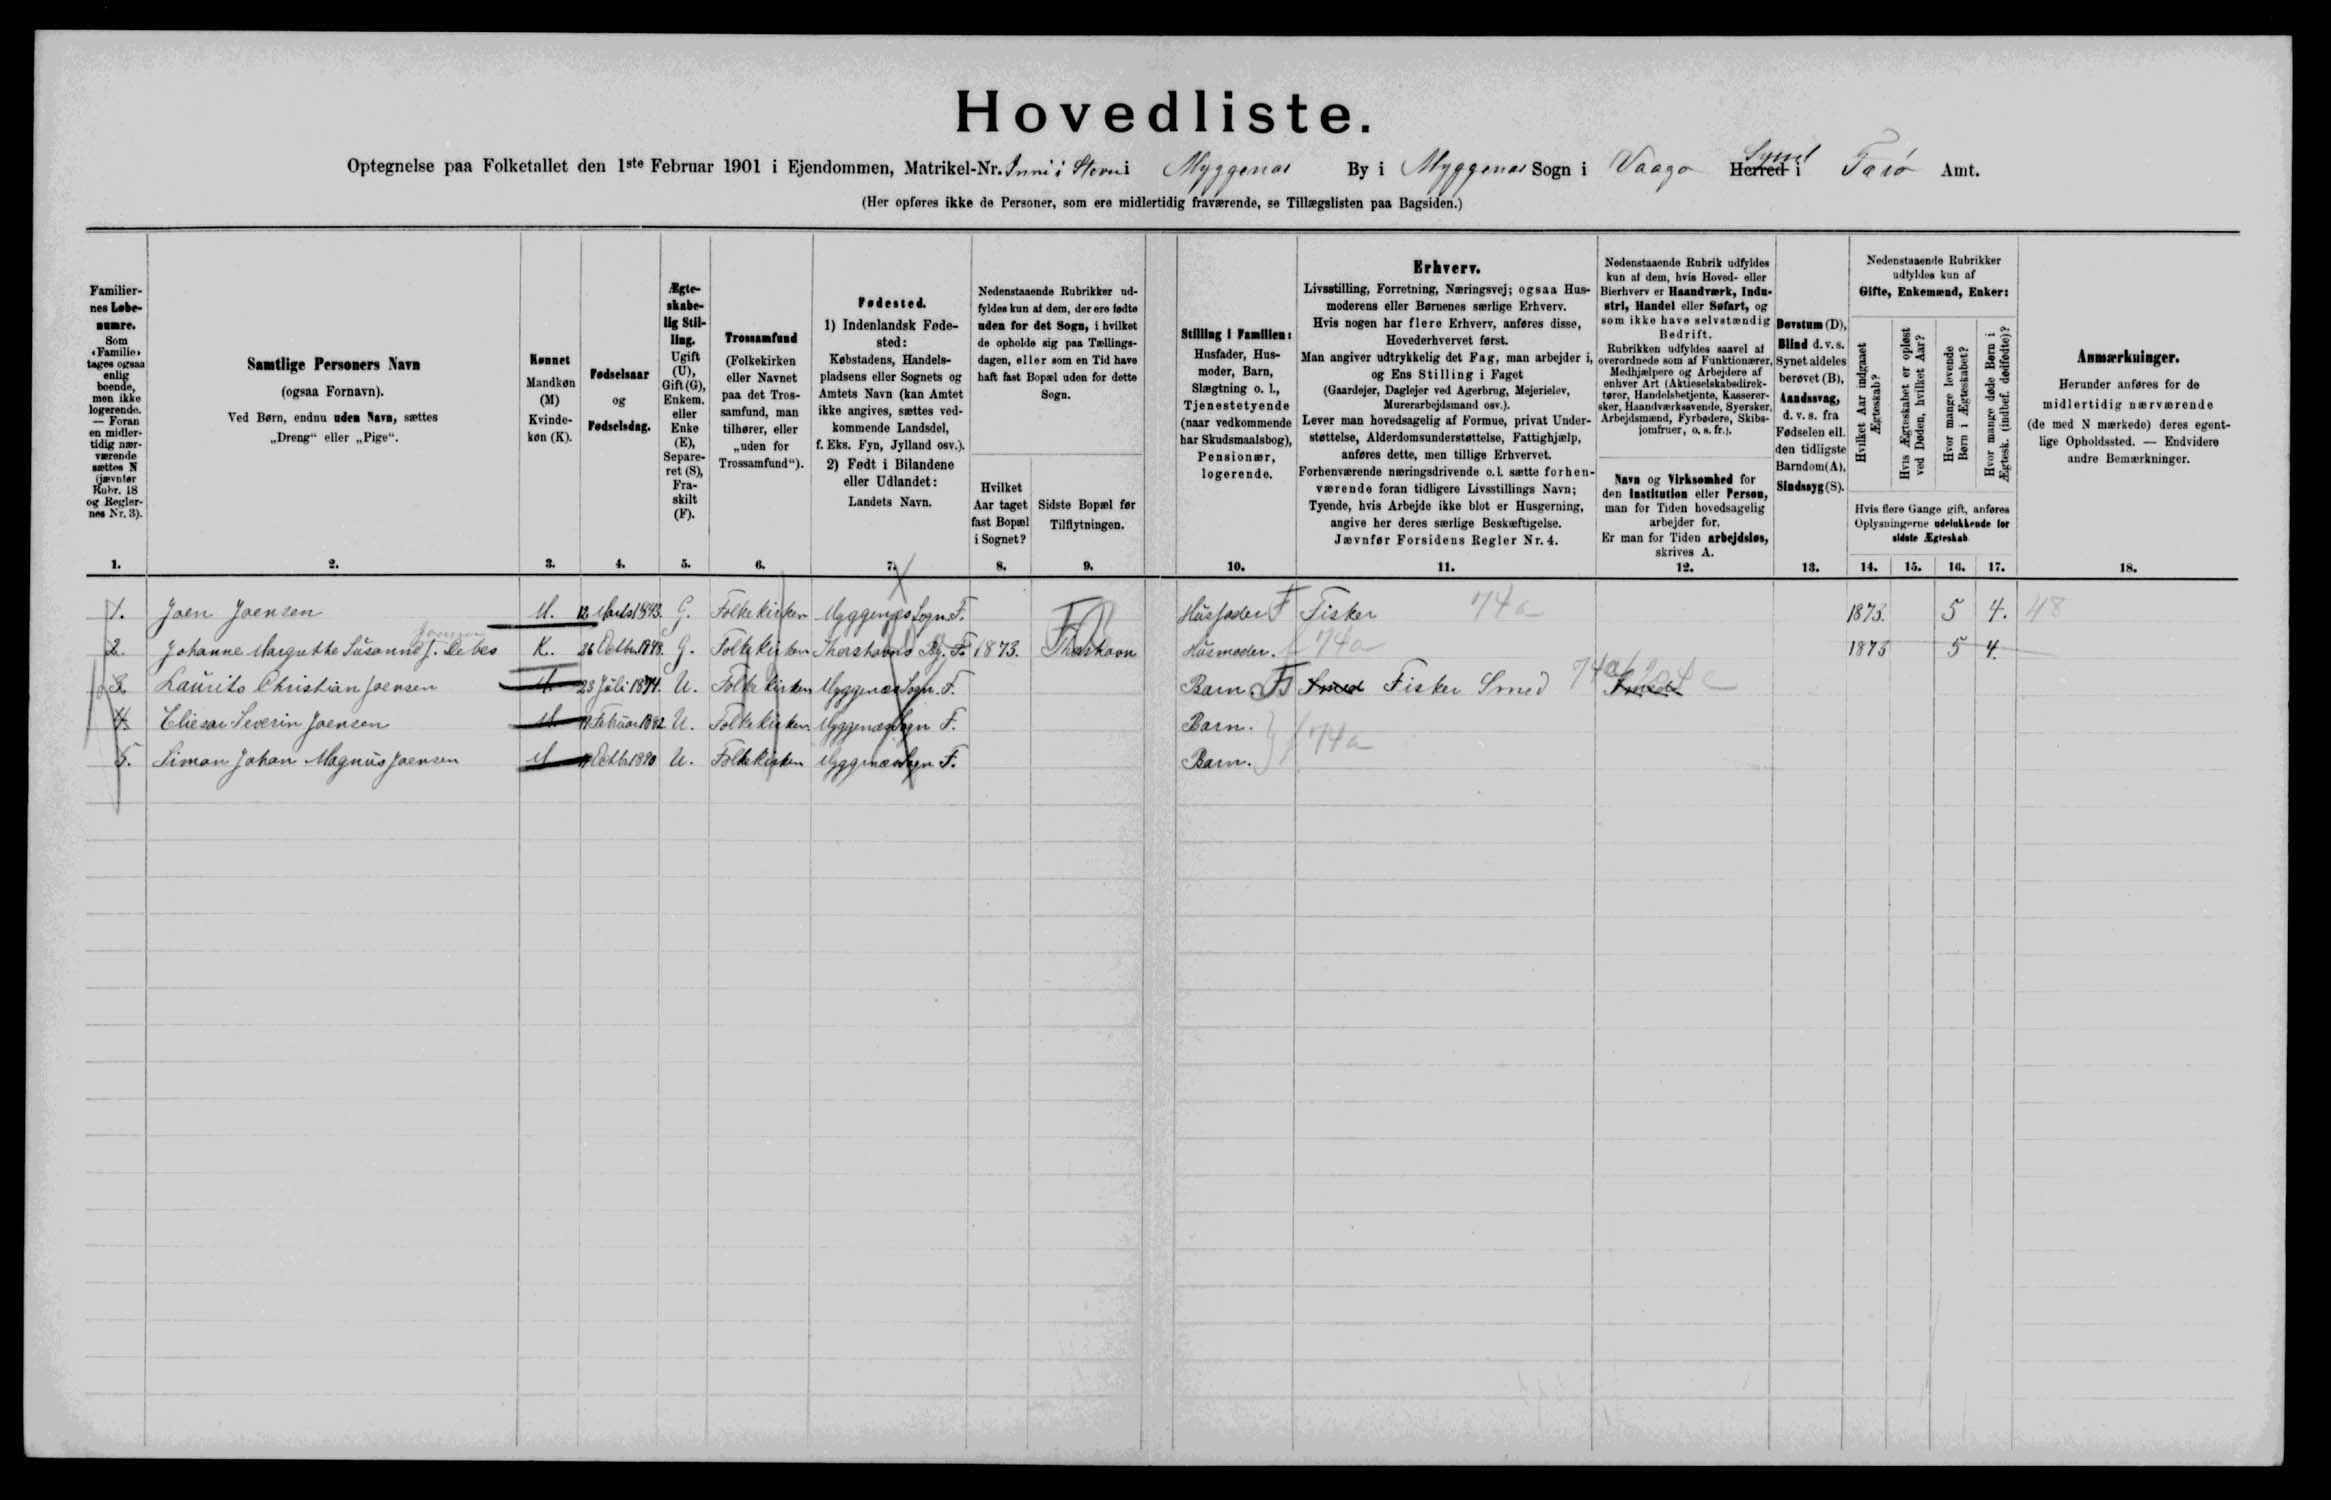 Hovedliste.
Optegnelse paa Folketallet den 1ste Februar 1901 i Ejendommen, Matrikel-Nr. Inni i Stovu i Myggenæs By i Myggenæs Sogn i Vaagø Herred Syssel i Færø Amt.
(Her opføres ikke de Personer, som ere midlertidig fraværende, se Tillægslisten paa Bagsiden.)
Familiernes Løbenumre. Som «Familie» tages ogsaa enlig boende, men ikke logerende. — Foran en midlertidig nærværende sættes N (jævnfør Rubr. 18 og Reglernes Nr. 3).
Samtlige Personers Navn
(ogsaa Fornavn).
Ved Børn, endnu uden Navn, sættes
„Dreng“ eller „Pige“.
Kønnet
Mandkøn (M)
Kvindekøn (K).
Fødselsaar
og
Fødselsdag.
Ægteskabelig Stilling.
Ugift (U), Gift (G), Enkem. eller Enke (E), Separeret (S), Fraskilt (F).
Trossamfund
(Folkekirken eller Navnet paa det Trossamfund, man tilhører, eller „uden for Trossamfund“).
Fødested.
1) Indenlandsk Fødested:
Købstadens, Handelspladsens eller Sognets og Amtets Navn (kan Amtet ikke angives, sættes vedkommende Landsdel, f. Eks. Fyn, Jylland osv.).
2) Født i Bilandene eller Udlandet:
Landets Navn.
Nedenstaaende Rubrikker udfyldes kun af dem, der ere fødte uden for det Sogn, i hvilket de opholde sig paa Tællingsdagen, eller som en Tid have haft fast Bopæl uden for dette Sogn.
Hvilket Aar taget fast Bopæl i Sognet?
Sidste Bopæl før Tilflytningen.
Stilling i Familien:
Husfader, Husmoder, Barn, Slægtning o. l., Tjenestetyende (naar vedkommende har Skudsmaalsbog), Pensionær, logerende.
Erhverv.
Livsstilling, Forretning, Næringsvej; ogsaa Husmoderens eller Børnenes særlige Erhverv.
Hvis nogen har flere Erhverv, anføres disse, Hovederhvervet først.
Man angiver udtrykkelig det Fag, man arbejder i, og Ens Stilling i Faget
(Gaardejer, Daglejer ved Agerbrug, Mejerielev, Murerarbejdsmand osv.).
Lever man hovedsagelig af Formue, privat Understøttelse, Alderdomsunderstøttelse, Fattighjælp, anføres dette, men tillige Erhvervet.
Forhenværende næringsdrivende o. l. sætte forhenværende foran tidligere Livsstillings Navn;
Tyende, hvis Arbejde ikke blot er Husgerning, angive her deres særlige Beskæftigelse.
Jævnfør Forsidens Regler Nr. 4.
Nedenstaaende Rubrik udfyldes kun af dem, hvis Hoved- eller Bierhverv er Haandværk, Industri, Handel eller Søfart, og som ikke have selvstændig Bedrift.
Rubrikken udfyldes saavel af overordnede som af Funktionærer, Medhjælpere og Arbejdere af enhver Art (Aktieselskabsdirektører, Handelsbetjente, Kasserersker, Haandværkssvende, Syersker, Arbejdsmænd, Fyrbødere, Skibsjomfruer, o. s. fr.).
Navn og Virksomhed for den Institution eller Person, man for Tiden hovedsagelig arbejder for.
Er man for Tiden arbejdsløs, skrives A.
Døvstum (D), Blind d. v. s. Synet aldeles berøvet (B), Aandssvag, d. v. s. fra Fødselen ell. den tidligste Barndom (A), Sindssyg (S).
Nedenstaaende Rubrikker udfyldes kun af Gifte, Enkemænd, Enker:
Hvilket Aar indgaaet Ægteskab?
Hvis Ægteskabet er opløst ved Døden, hvilket Aar?
Hvor mange levende Børn i Ægteskabet?
Hvor mange døde Børn i Ægtesk. (indbef. dødfødte)?
Hvis flere Gange gift, anføres Oplysningerne udelukkende for sidste Ægteskab.
Anmærkninger.
Herunder anføres for de midlertidig nærværende (de med N mærkede) deres egentlige Opholdssted. — Endvidere andre Bemærkninger.
1. 2. 3. 4. 5. 6. 7. 8. 9. 10. 11. 12. 13. 14. 15. 16. 17. 18.
1. Joen Joensen M. 12 Marts 1843. G. Folkekirken Myggenæs Sogn F. Husfader F Fisker 74a 1873. 5 4. 48
2. Johanne Margrethe Susanne Joensen f. Debes K. 26 Octbr. 1848. G. Folkekirken Thorshavns F. 1873. Thorshavn Husmoder. 74a 1873 5 4.
3. Laurits Christian Joensen M. 23 Juli 1874. U. Folkekirken Myggenæs Sogn. F. Barn Smed Fisker Smed 74a Smed
4. Eliesar Severin Joensen M Februar 1882 U. Folkekirken Myggenæs Sogn F. Barn.
5. Simon Johan Magnus Joensen M Octbr. 1890 U. Folkekirken Myggenæs Sogn F. Barn. 74a